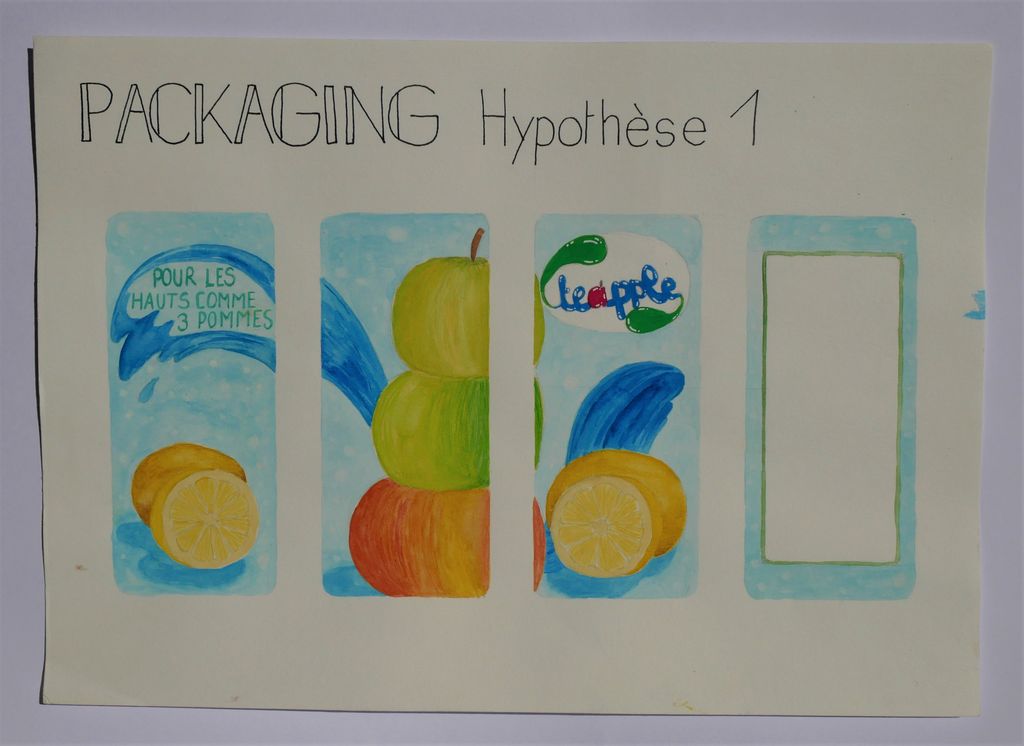 PACKAGING Hypothèse 1
POUR LES
HAUTS COMME
3 POMMES
teapple